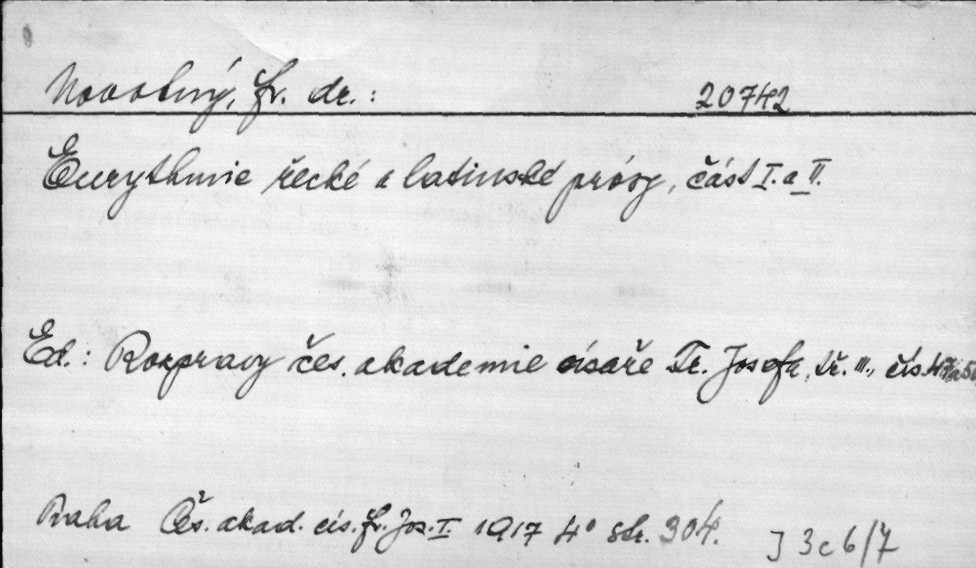 Novotný, Fr. dr.: 20742
Eurythmie řecké a latinské prósy, část I. a II.
Ed.: Rozpravy čes. akademie císaře Fr. Josefa, tř. III., čís.
Praha Čes. akad. cís. Fr. Jos. I. 1917 4° str. 304. J 3c6/7